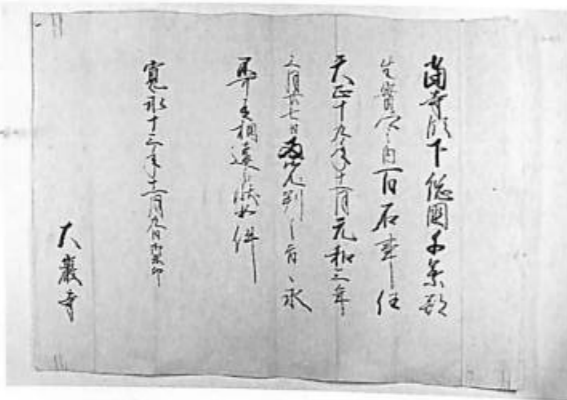 當寺領下総國千葉郡
生實穴之内百石事任
天正十九年十一月元和三年
三月廿七日両先判之旨永
弗可相違之状如件
寛永十三年十一月九日御朱印
大巖寺